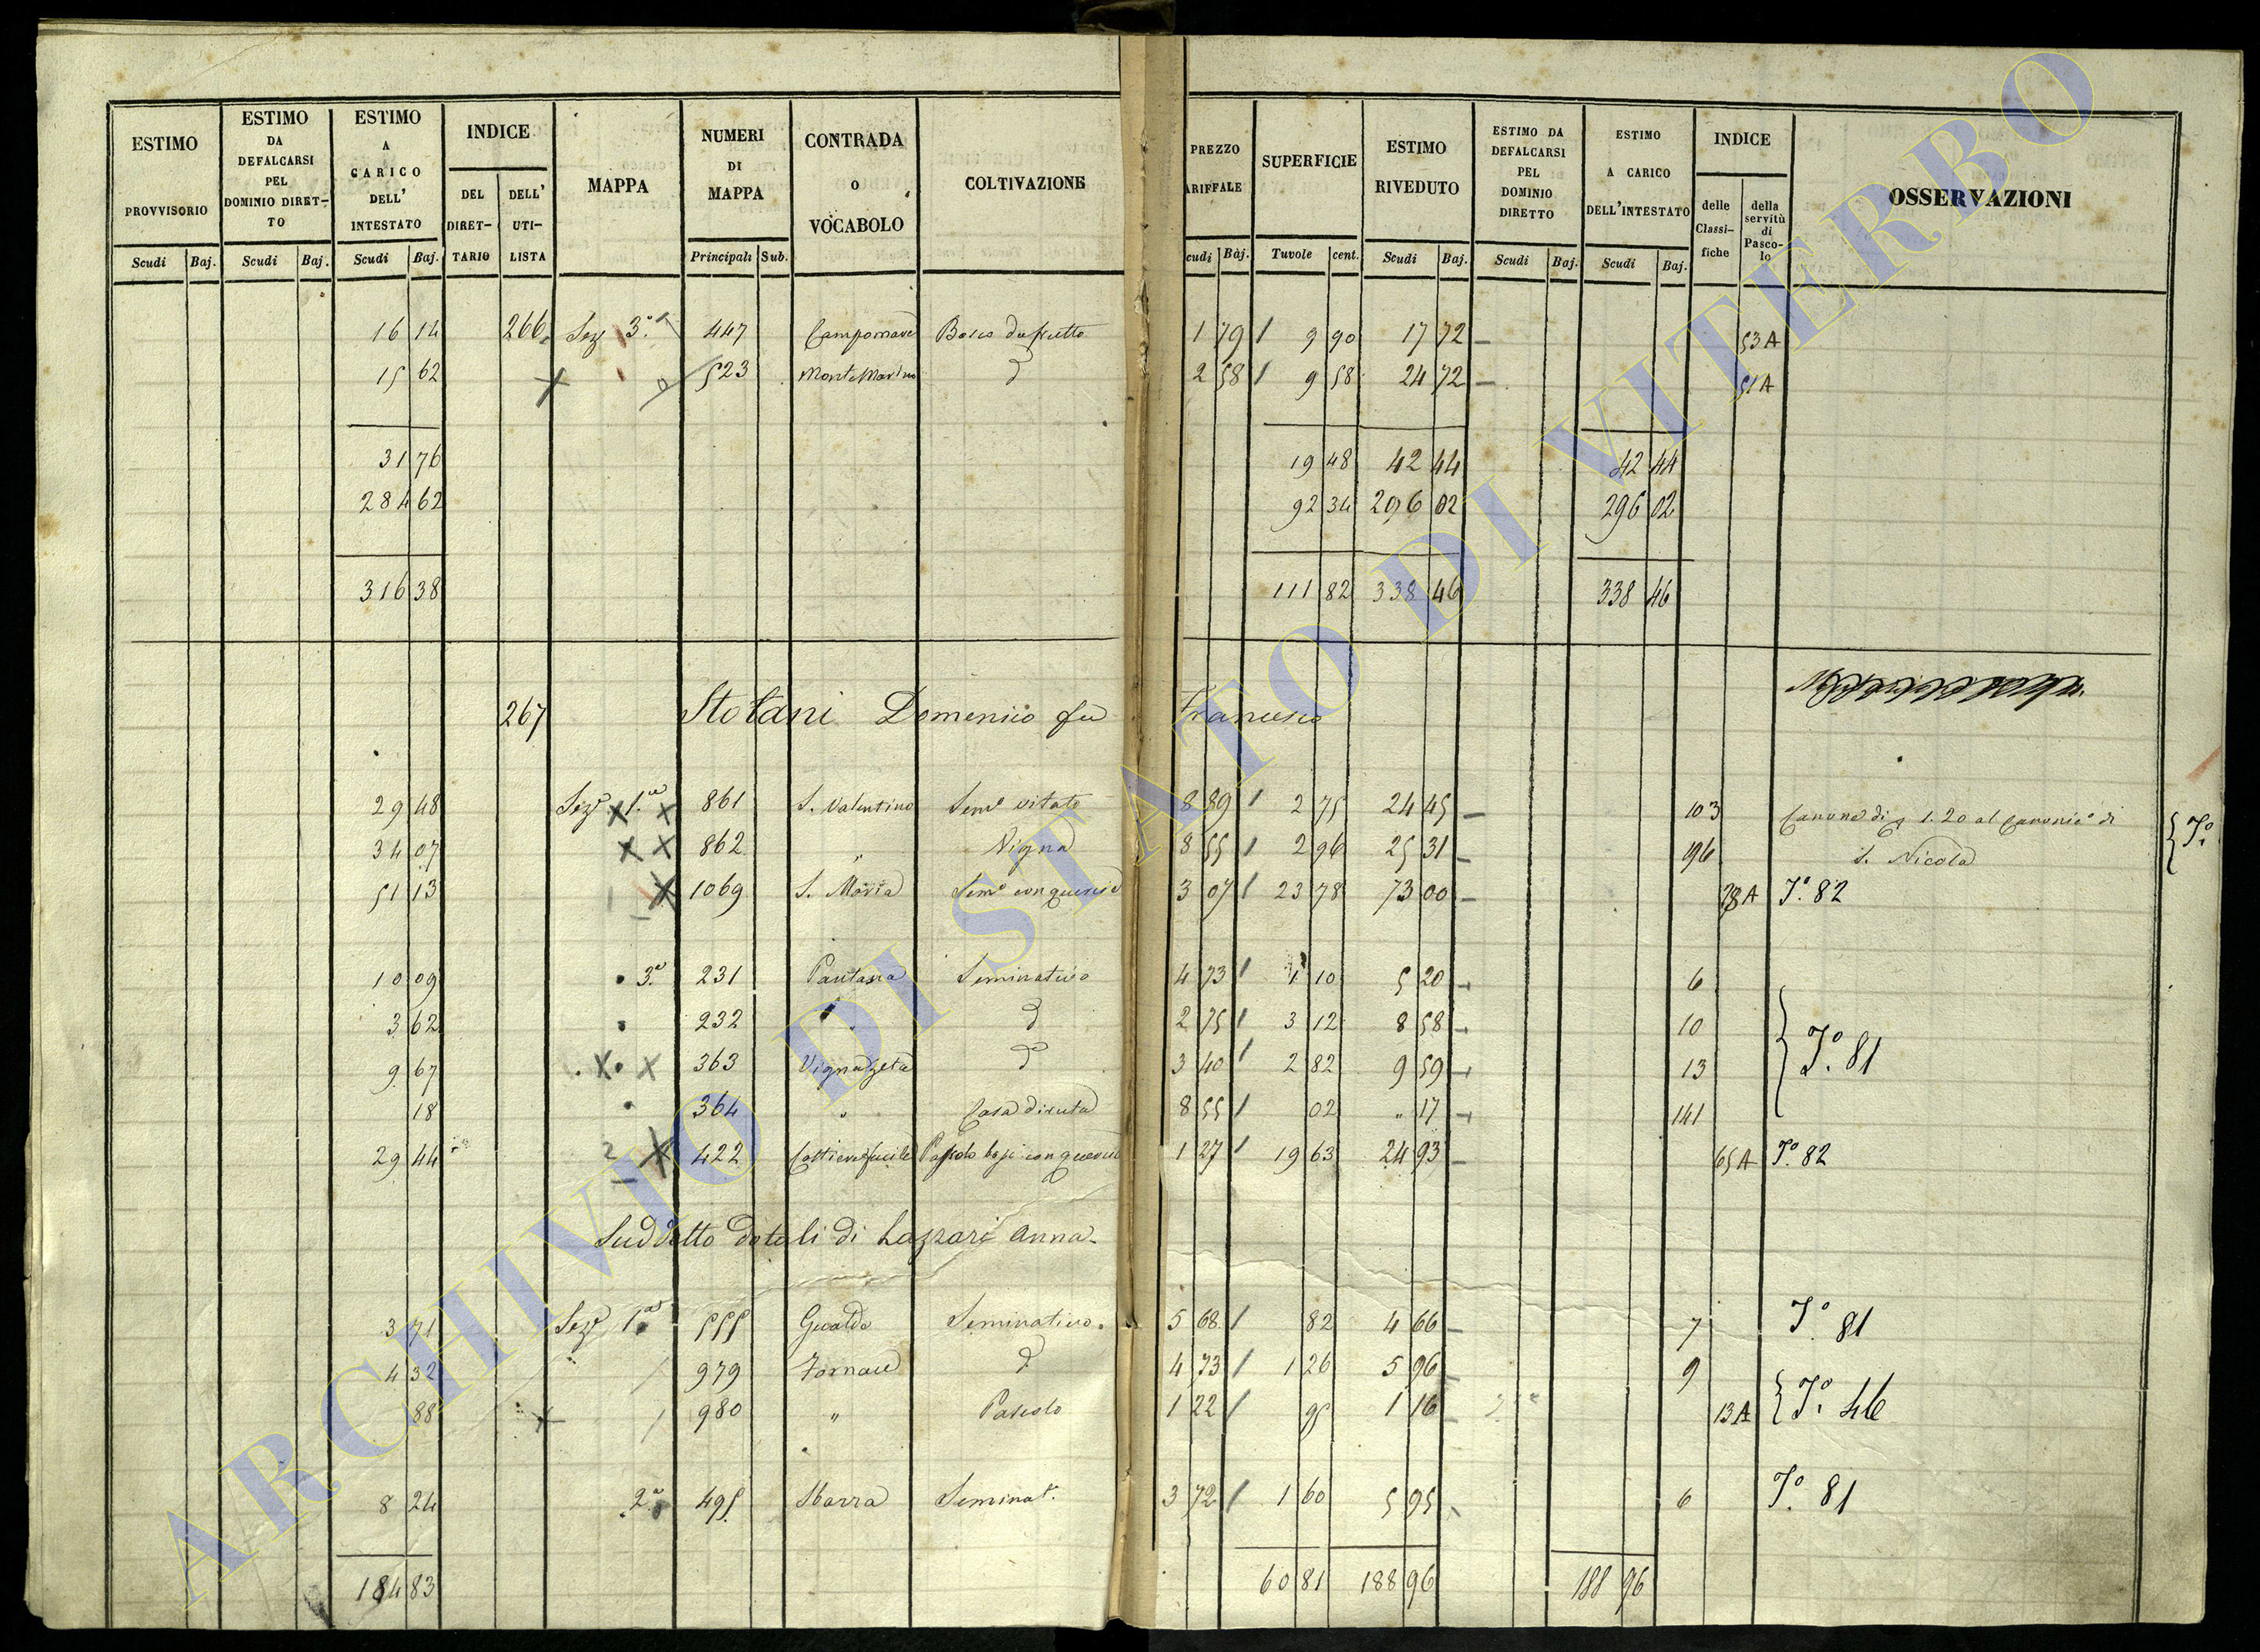 ESTIMO PROVVISORIO Scudi Baj.
ESTIMO DA DEFALCARSI PEL DOMINIO DIRETTO Scudi Baj.
ESTIMO A CARICO DELL' INTESTATO Scudi Baj.
INDICE DEL DIRETTARIO DELL' UTILISTA
MAPPA
NUMERI DI MAPPA Principali Sub.
CONTRADA o VOCABOLO
COLTIVAZIONE
PREZZO ARIFFALE cudi Baj.
SUPERFICIE Tavole cent.
ESTIMO RIVEDUTO Scudi Baj.
ESTIMO DA DEFALCARSI PEL DOMINIO DIRETTO Scudi Baj.
ESTIMO A CARICO DELL'INTESTATO Scudi Baj.
INDICE delle Classifiche della servitù di Pascolo
OSSERVAZIONI
16 14 266 Sez 3.a 447 Bosco da frutto 1 79 9 90 17 72 53 A
15 62 523 Monte Marino d 2 58 9 58 24 72 51 A
31 76 19 48 42 44 42 44
284 62 92 34 296 02 296 02
316 38 111 82 338 46 338 46
267 Stolani Domenico fu Francesco
29 48 Sez.e 1.a 861 S. Valentino Sem.o vitato 8 89 2 75 24 45 103 Canone di 1.20 al Canonic.o di
34 07 862 " Vigna 8 55 2 96 25 31 96 S. Nicola
51 13 1069 S. Maria Sem.o con quercie 3 07 23 78 73 00 28 A T.o 82
10 09 3.a 231 Pantana Seminativo 4 73 1 10 5 20 6
3 62 232 " d 2 75 3 12 8 58 10
9 67 363 d 3 40 2 82 9 59 13 T.o 81
18 364 " Casa diruta 8 55 02 " 17 141
29 44 422 Pascolo con quercie 1 27 19 63 24 93 65 A T.o 82
Suddetto dotali di Lazzari Anna
3 71 Sez.e 1.a 555 Seminativo 5 68 82 4 66 7 T.o 81
4 32 979 Fornace d 4 73 1 26 5 96 9
88 980 " Pascolo 1 22 95 1 16 13 A T.o 46
8 24 2.a 495 Sbarra Seminat.o 3 72 1 60 5 95 6 T.o 81
184 83 60 81 188 96 188 96
ARCHIVIO DI STATO DI VITERBO